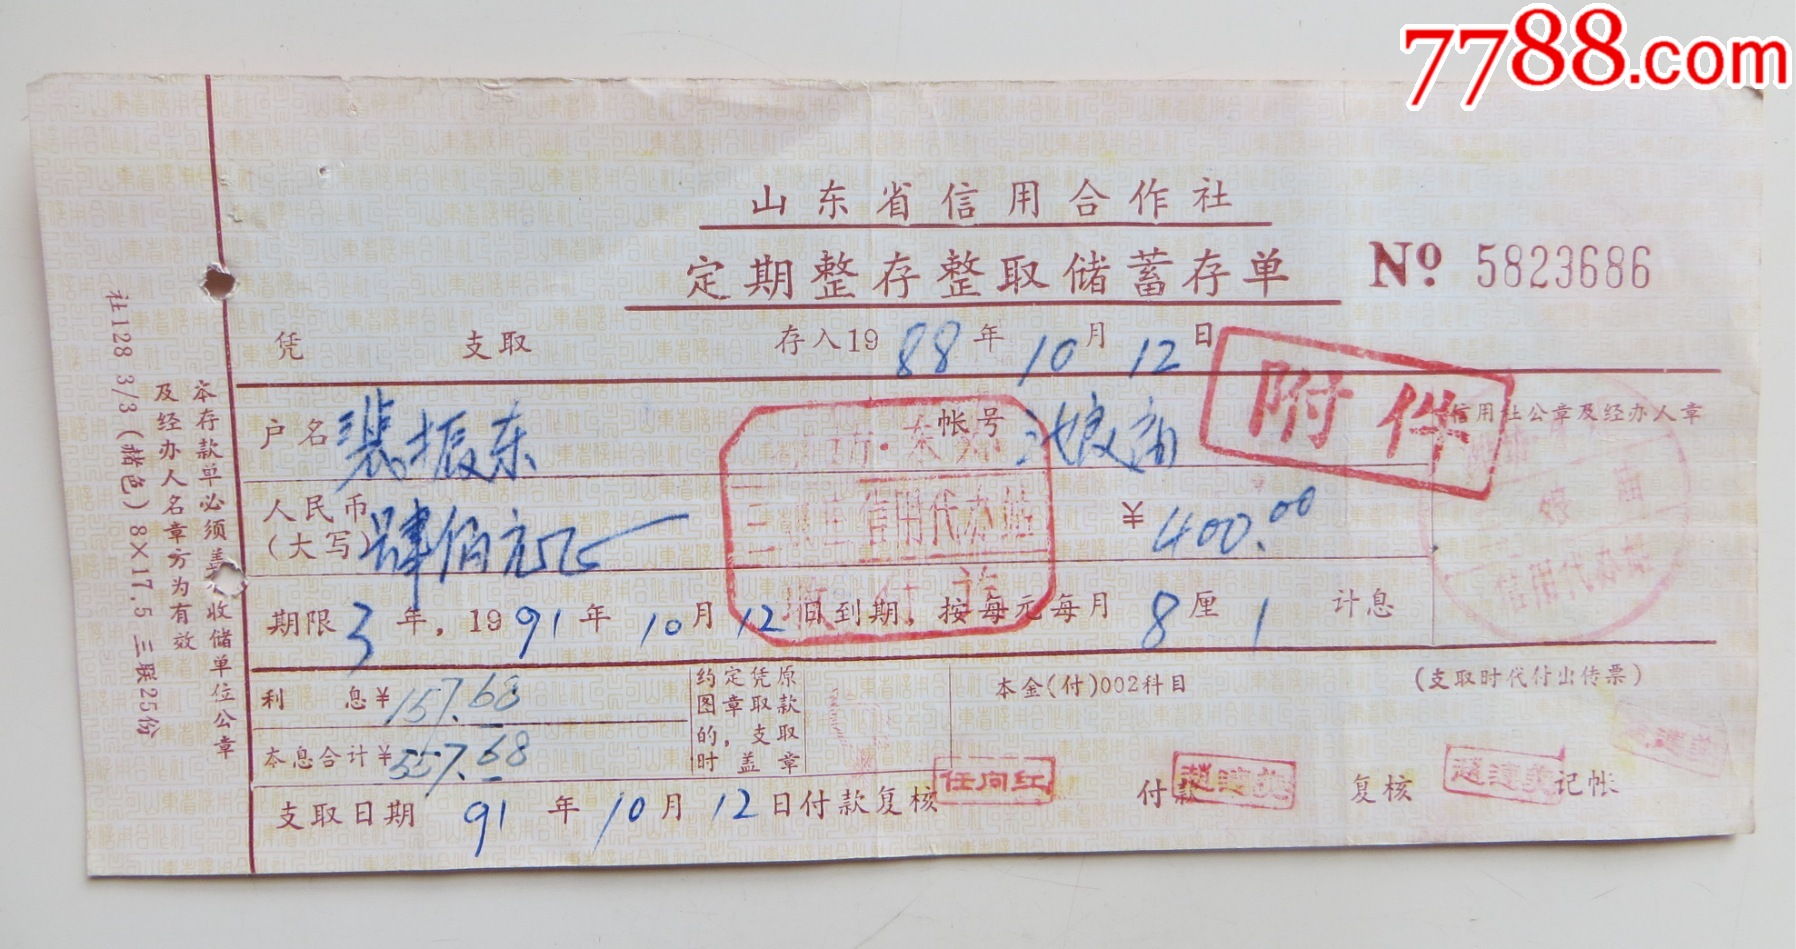 7788.com
山东省信用合作社
定期整存整取储蓄存单
№ 5823686
凭 支取 存入1988年10月12日
附件
户名 裴振东 帐号 池娘庙
信用社公章及经办人章
人民币(大写) 肆佰元正 ¥400.00
信用代办站
娘庙
信用代办站
期限3年,1991年10月12日到期,按每元每月8厘1计息
利息¥157.68
本息合计¥557.68
约定凭原
图章取款
的,支取
时盖章
本金(付)002科目
(支取时代付出传票)
支取日期 91年10月12日付款复核 任向红 付款 复核 记帐
本存款单必须盖 收储单位公章
及经办人名章方为有效
社128 3/3(赭色)8×17.5 三联25份